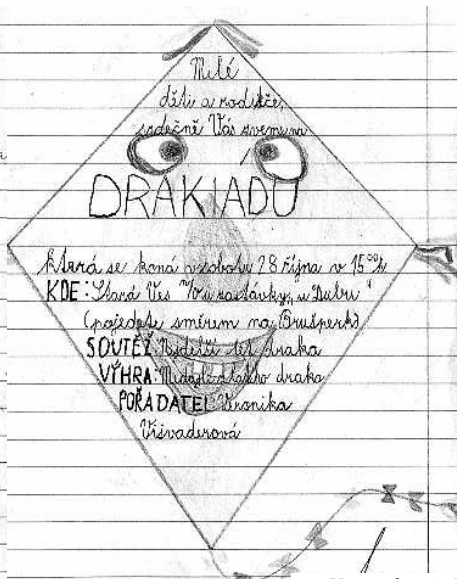 Milé
děti a rodiče,
srdečně Vás zveme na
DRAKIADU
která se koná v sobotu 28 října v 15⁰⁰ h
KDE: Stará Ves n/O u zastávky „u Dubu“
(pojedete směrem na Brušperk)
SOUTĚŽ: Nejdelší let draka
VÝHRA: Medajle zlatého draka
POŘADATEL Veronika
Višvaderová